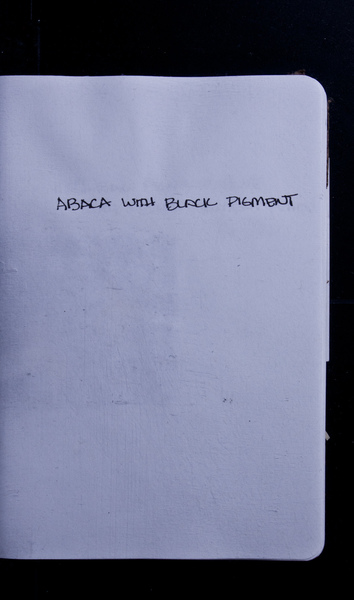 ABACA WITH BLACK PIGMENT